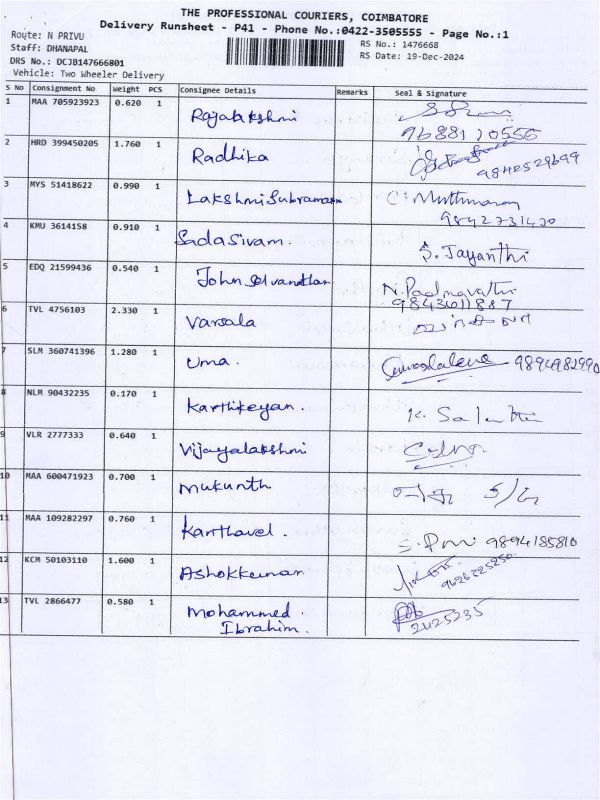 THE PROFESSIONAL COURIERS, COIMBATORE
Delivery Runsheet - P41 - Phone No.:0422-3505555 - Page No.:1
Route: N PRIVU
RS No.: 1476668
Staff: DHANAPAL
RS Date: 19-Dec-2024
DRS No.: DCJB147666801
Vehicle: Two Wheeler Delivery
S No Consignment No Weight PCS Consignee Details Remarks Seal & Signature
1 MAA 705923923 0.620 1 Rajalakshmi
9688110556
2 HRD 399450205 1.760 1 Radhika
9842529699
3 MYS 51418622 0.990 1 Lakshmi Subramanian C. Muthumaray
9842731420
4 KMU 3614158 0.910 1 Sadasivam. S. Jayanthi
5 EDQ 21599436 0.540 1 John Selvanathan N. Padmavathi
9843011887
6 TVL 4756103 2.330 1 Varsala
7 SLM 360741396 1.280 1 Uma. 9894982990
8 NLM 90432235 0.170 1 Karthikeyan. K.
9 VLR 2777333 0.640 1 Vijayalakshmi
10 MAA 600471923 0.700 1 Mukunth
11 MAA 109282297 0.760 1 Karthavel. 9894185810
12 KCM 50103110 1.600 1 Ashokkumar 9626225250
13 TVL 2866477 0.580 1 Mohammed
Ibrahim. 2425235